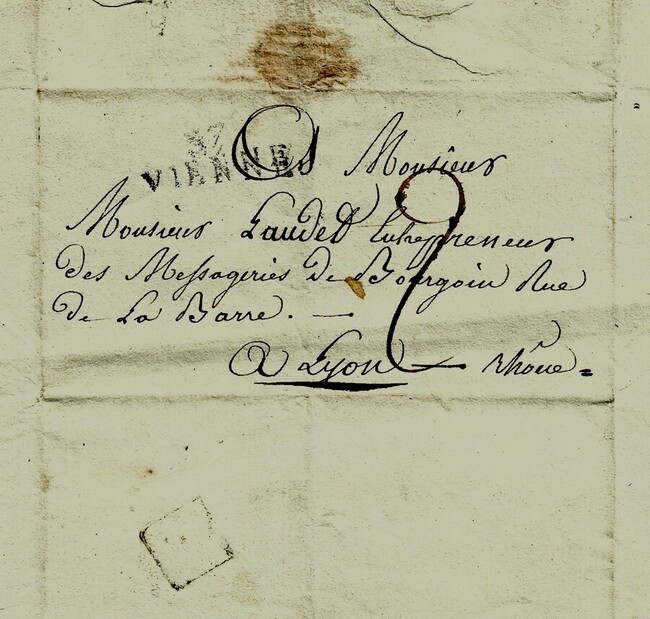 37
VIENNE
A Monsieur
Monsieur Laudet Entrepreneur
des Messageries De Bourgoin Rue
de La Barre. —
2
A Lyon — Rhône =